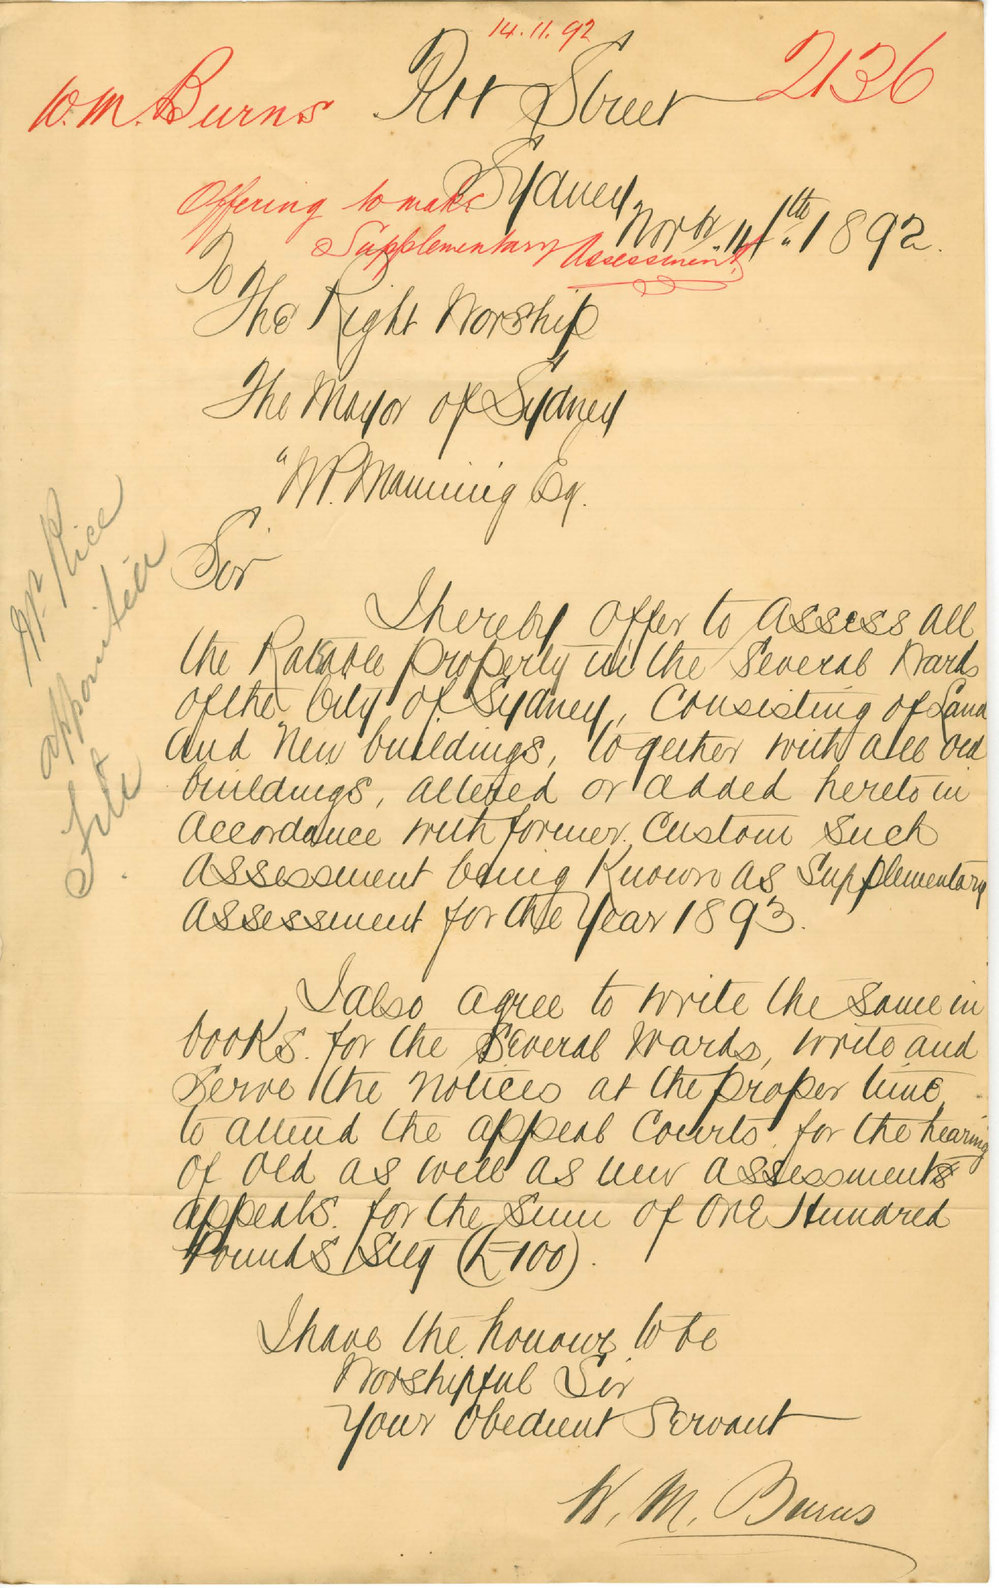 14.11.92
W. M. Burns
2136
Pitt Street
Sydney
Offering to make
Supplementary Assessment
Novbr. 11th 1892.
To
The Right Worship
The Mayor of Sydney
"W.P. Manning Esq.
Sir
I hereby offer to assess all
the Ratable property in the several Wards
of the City of Sydney, Consisting of Land
and New buildings, together with all old
buildings, altered or added hereto in
accordance with former Custom Such
Assessment being Known as Supplementary
Assessment for the Year 1893.
I also agree to write the same in
books. for the Several Wards, write and
Serve the notices at the proper time,
to attend the appeal Courts, for the hearing
of old as well as new assessments
appeals. for the sum of One Hundred
Pounds Stg (£100).
I have the honour to be
Worshipful Sir
Your Obedient Servant
W. M. Burns
Mr. Rice